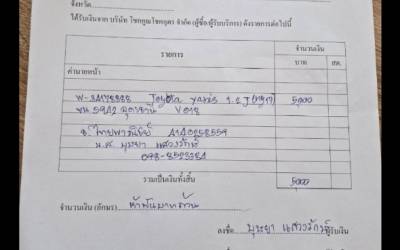 จังหวัด
ได้รับเงินจาก บริษัท โชคคูณโชคอุดร จำกัด (ผู้ซื้อ/ผู้รับบริการ) ดังรายการต่อไปนี้
รายการ
จำนวนเงิน
บาท
สต.
ค่านายหน้า
Toyota yaris 1.2 J
5,000
ขน 5942 อุดรธานี
ธ.ไทยพาณิชย์ 4140258559
น.ส. บุษยา แสวงรักษ์
098-8523284
รวมเป็นเงินทั้งสิ้น
5,000
จำนวนเงิน (อักษร) ห้าพันบาทถ้วน
ลงชื่อ บุษยา แสวงรักษ์ ผู้รับเงิน